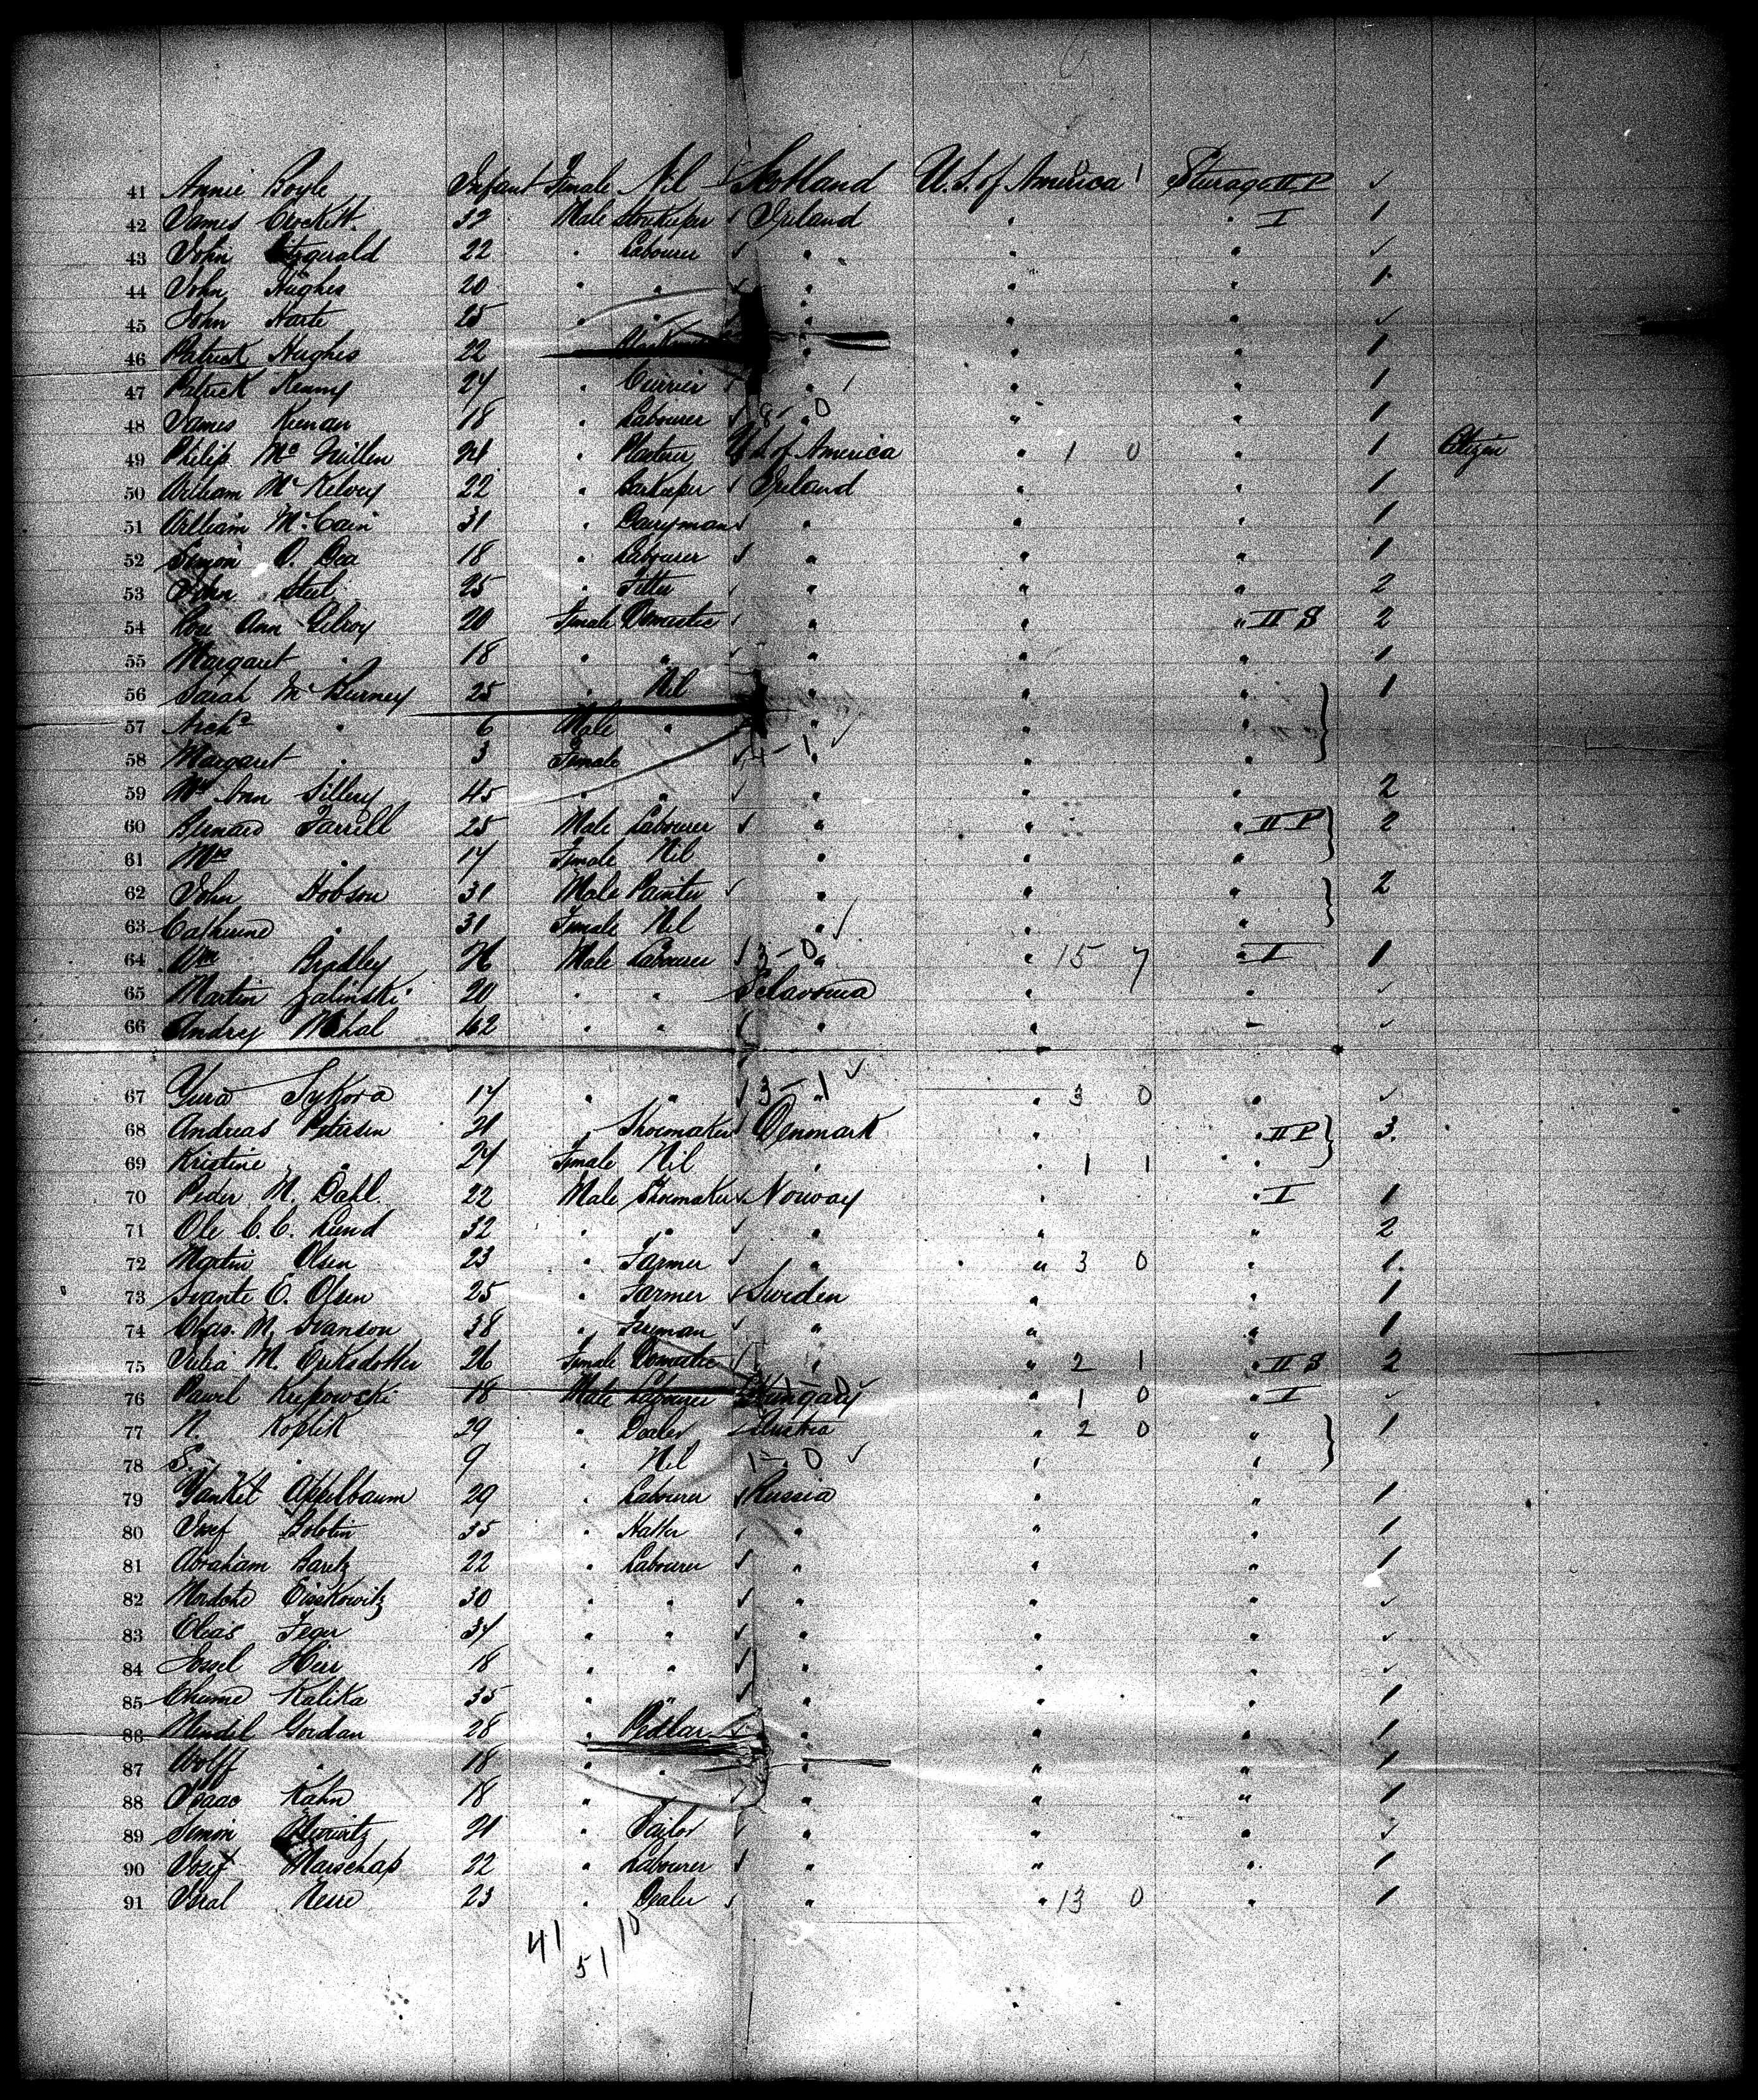 41 Annie Boyle Infant Female Nil Scotland U.S. of America 1 Steerage II P ✓
42 James Crockett. 32 Male Storekeeper ✓ Ireland " " I 1
43 John Fitzgerald 22 " Labourer ✓ " " " ✓
44 John Hughes 20 " " ✓ " " " 1
45 John Harte 25 " " " " " ✓
46 Patrick Hughes 22 " " " 1
47 Patrick Kenny 27 " Currier ✓ " " " 1
48 James Keenan 18 " Labourer ✓ 8 - 0 " " 1
49 Philip Mc 24 " Plasterer U.S. of America " 1 0 " 1 Citizen
50 William McKelvey 22 " Barkeeper ✓ Ireland " " 1
51 William McCain 31 " Dairyman ✓ " " " 1
52 Simon O. Dea 18 " Labourer ✓ " " " 1
53 John Steel 25 " Fitter ✓ " " " 2
54 Rose Ann Gilroy 20 Female Domestic ✓ " " " II S 2
55 Margaret " 18 " " ✓ " " " 1
56 Sarah McBurney 25 " Nil " " " } 1
57 Archd " 6 Male " " " "
58 Margaret " 3 Female ✓ 4 - 1 " "
59 Mrs Ann Sillery 45 " " ✓ " " " 2
60 Bernard Farrell 25 Male Labourer ✓ " " " II P } 2
61 Mrs " 17 Female Nil " " "
62 John Hobson 31 Male Painter ✓ " " " } 2
63 Catherine " 31 Female Nil " ✓ " "
64 Wm Bradley 26 Male Labourer ✓ 3 - 0 " " 15 7 " I 1
65 Martin Zalinski 20 " " Sclavonia " " ✓
66 Andrey Mihal 42 " " ✓ " " " ✓
67 Yura Sykora 17 " " ✓ 3 - 1 ✓ " 3 0 " ✓
68 Andreas Petersen 21 " Shoemaker ✓ Denmark " " II P } 3.
69 Kristine " 27 Female Nil " " 1 1 "
70 Peder M. Dahl 22 Male Shoemaker ✓ Norway " " I 1
71 Ole C. C. Lund 32 " " ✓ " " " 2
72 Martin Olsen 23 " Farmer ✓ " " 3 0 " 1.
73 Svante E. Olsen 25 " Farmer ✓ Sweden " " 1
74 Chas. M. Svanson 38 " Fireman ✓ " " " 1
75 Julia M. Eriksdotter 26 Female Domestic ✓ " " 2 1 " II S 2
76 Pawel 18 Male Labourer Hungary " 1 0 " I ✓
77 N. Koplik 29 " Dealer Austria " 2 0 " } 1
78 S. " 9 " Nil 1 - 0 ✓ " "
79 Yankel Appelbaum 29 " Labourer ✓ Russia " " 1
80 Josef Bolotin 35 " Hatter ✓ " " " 1
81 Abraham Baretz 22 " Labourer ✓ " " " 1
82 Mordche Eisskowitz 30 " " ✓ " " " ✓
83 Elias Feger 34 " " ✓ " " " ✓
84 Jossel Herr 18 " " ✓ " " " ✓
85 Chume Kalika 35 " " ✓ " " " 1
86 Mendel Gordan 28 " Pedlar ✓ " " " 1
87 Wolff " 18 " " " " " 1
88 Isaac Kahn 18 " " " " " 1
89 Simon Hurwitz 21 " Tailor ✓ " " " ✓
90 Josef Marschap 22 " Labourer ✓ " " " 1
91 Isral Nesse 23 " Dealer ✓ " " 13 0 " 1
41 51 10